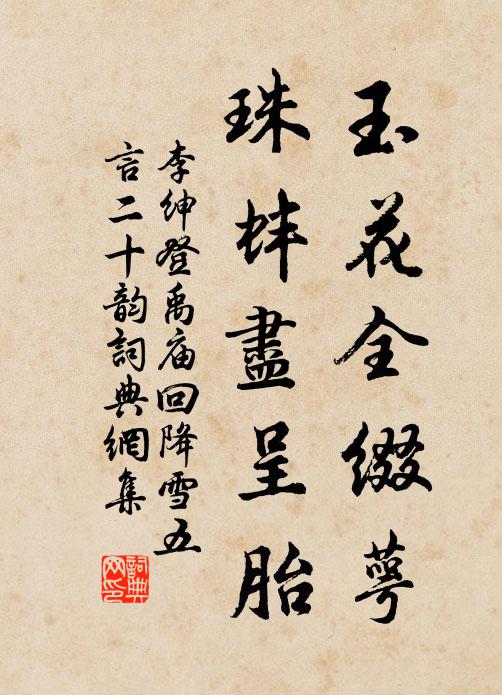 玉花全缀萼
珠蚌盡呈胎
李紳登禹庙回降雪五
言二十韵詞典網集
詞典网印